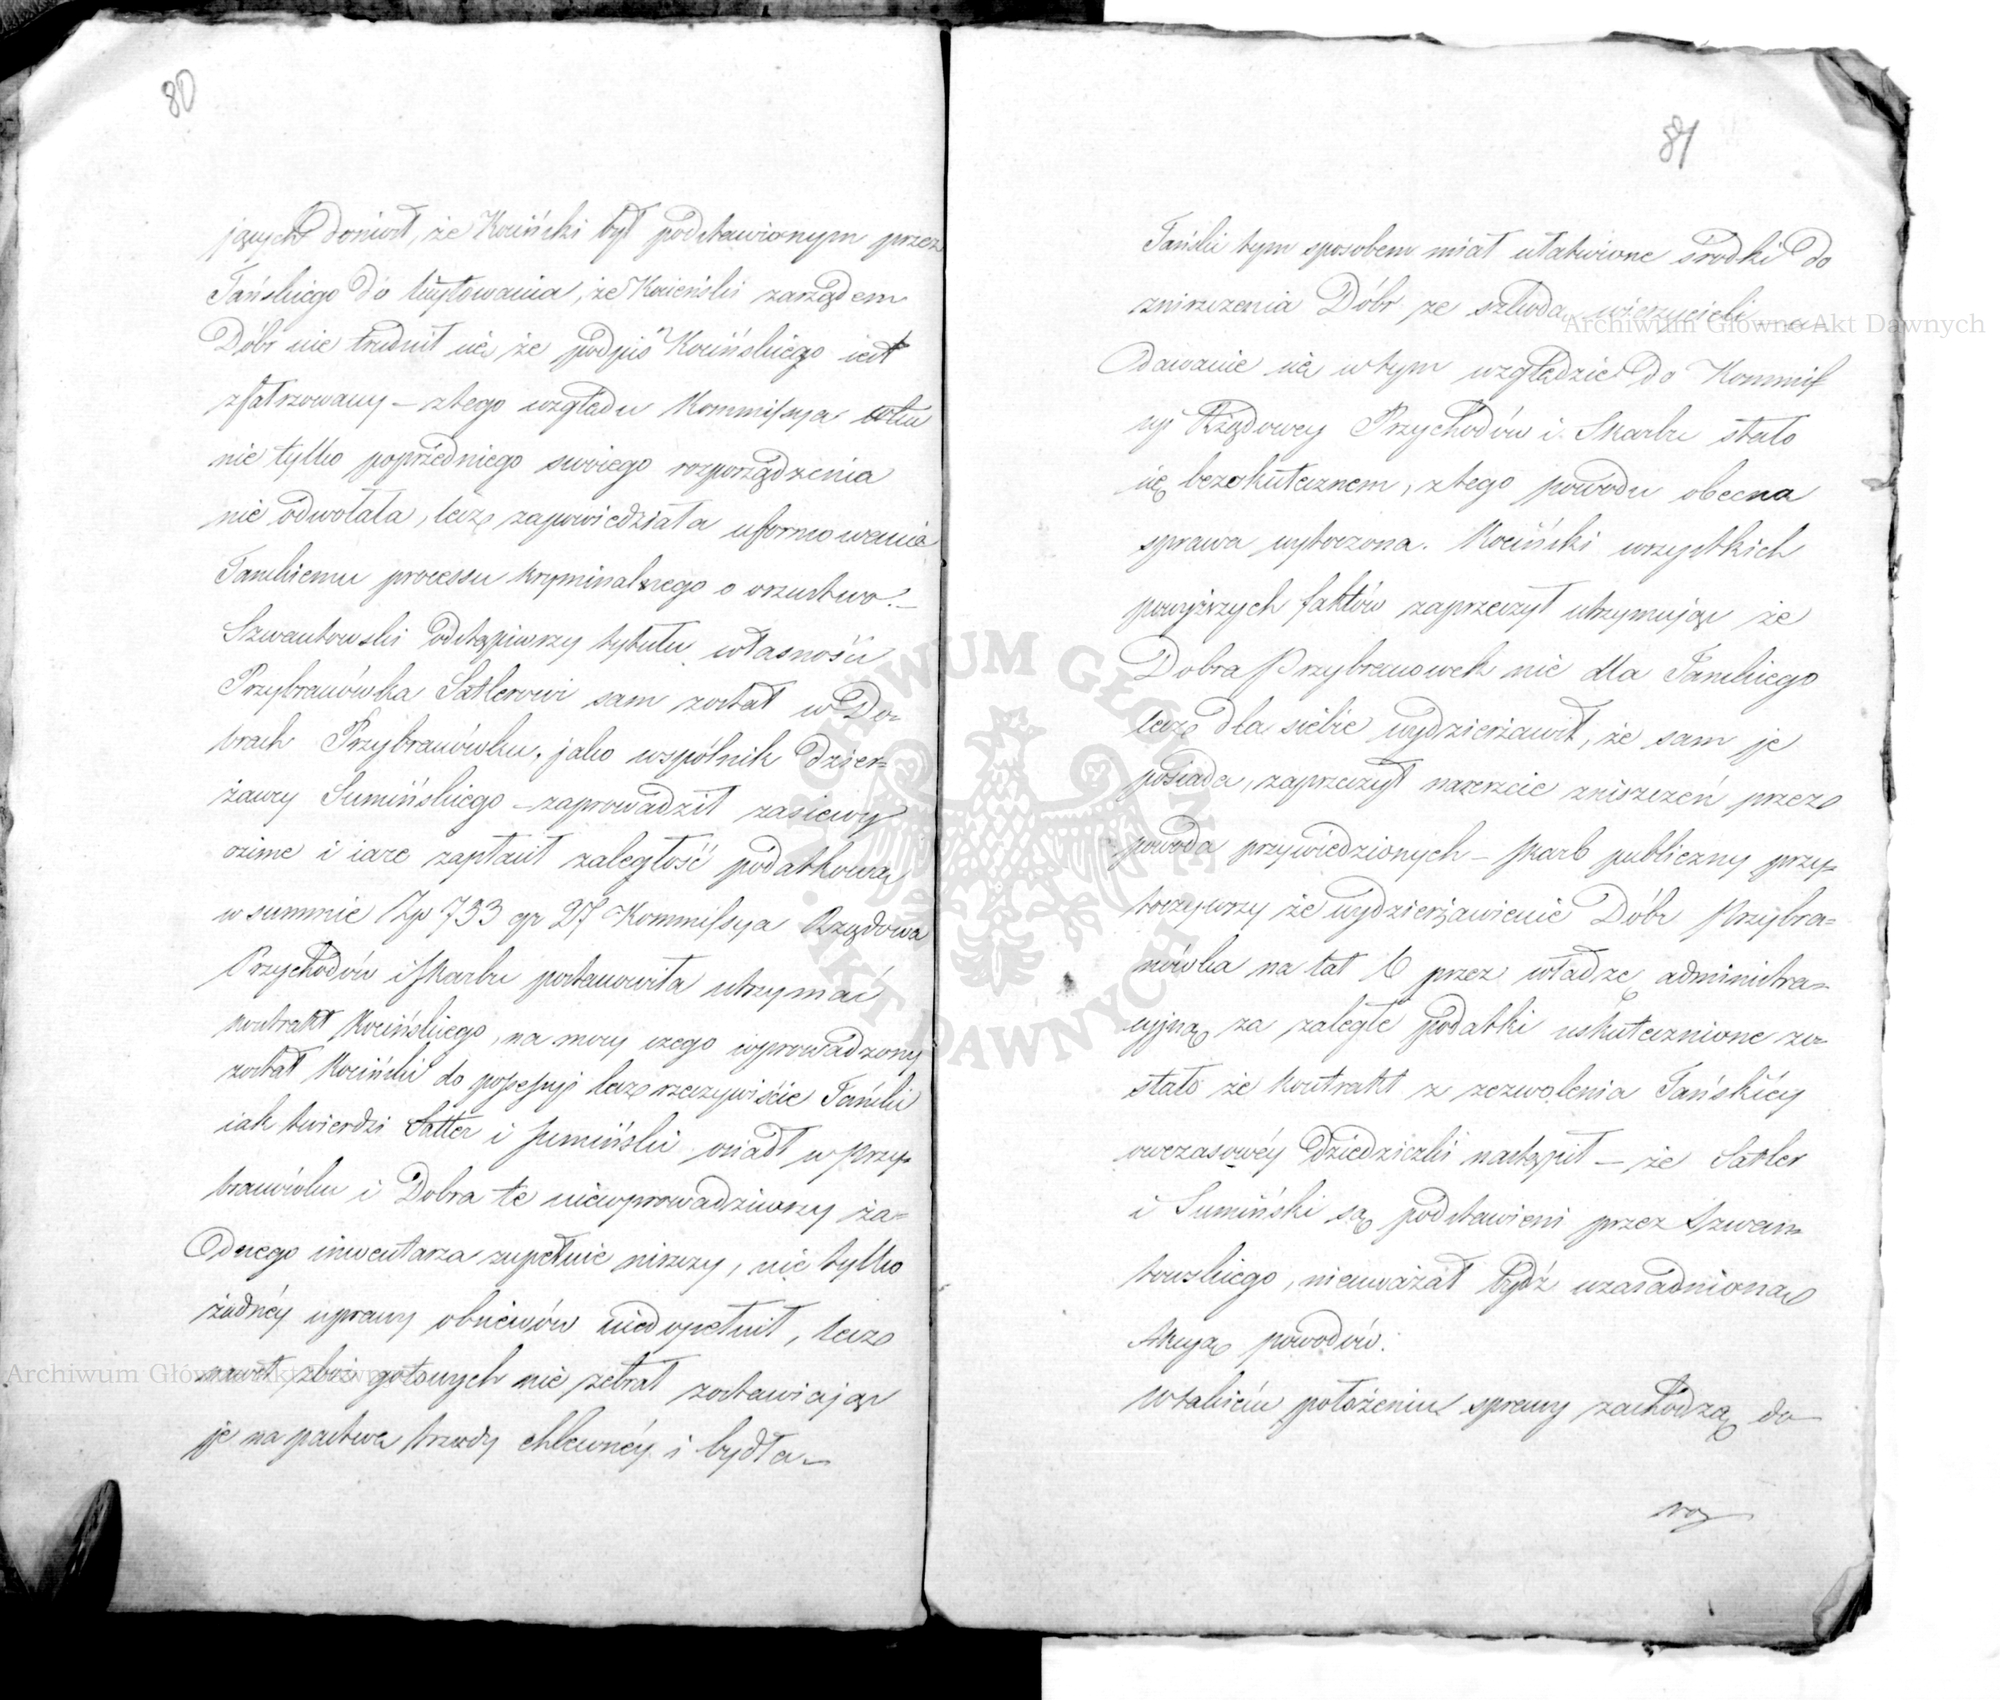 80
jących doniósł, że Kociński był podstawionym przez
Tańskiego do licytowania, że Kocieński zarządem
Dóbr nie trudnił się, że podpis Kocińskiego iest
sfałszowany – z tego względu Kommissya
nie tylko poprzedniego swoiego rozporządzenia
nie odwołała, lecz zapowiedziała uformowanie
Tanskiemu processu kryminalnego o oszustwo. –
Szwantowski odstąpiwszy tytułu własności
Przybranówka Satlerowi sam został w Do-
brach Przybranówku, jako wspólnik dzier-
żawy Sumińskiego – zaprowadził zasiewy
ozime i iare zapłacił zaległość podatkową
w summie Zp 733 gr 27 Kommissya Rządowa
Przychodów i Skarbu postanowiła utrzymać
kontrakt Kocińskiego, na mocy czego wprowadzony
został Kociński do possessyi lecz rzeczywiście Tański
iak twierdzi Satler i Sumiński osiadł w Przy-
branówku i Dobra te niewprowadziwszy ża-
dnego inwentarza zupełnie niszczy, nie tylko
żadnéy uprawy obsiewów niedopełnił, lecz
nawet zbóż gotowych nie zebrał zostawiając
je na pastwę trzody chlewnéy i bydła –
81
Tański tym sposobem miał ułatwione środki do
zniszczenia Dóbr ze szkodą wierzycieli –
Odawanie się w tym względzie do Kommis
syi Rządowey Przychodów i Skarbu stało
się bezskutecznem, z tego powodu obecna
sprawa wytoczona. Kociński wszystkich
powyższych faktów zaprzeczył utrzymując że
Dobra Przybranowek nie dla Tanskiego
lecz dla siebie wydzierżawił, że sam je
posiada, zaprzeczył nareszcie zniszczeń przez
powoda przywiedzionych – Skarb publiczny przy-
toczywszy że wydzierżawienie Dóbr Przybra-
nówka na lat 6 przez władzę administra-
cyjną za zaległe podatki uskutecznione zo-
stało że kontrakt z zezwolenia Tańskiéy
owczasowéy dziedziczki nastąpił – że Satler
i Sumiński są podstawieni przez Szwan-
towskiego, nieuważał bydź uzasadnioną
Akcyą powodów.
W takiém położeniu sprawy zachodzą do
wo
Archiwum Główne Akt Dawnych
Archiwum Główne Akt Dawnych
ARCHIWUM GŁÓWNE AKT DAWNYCH